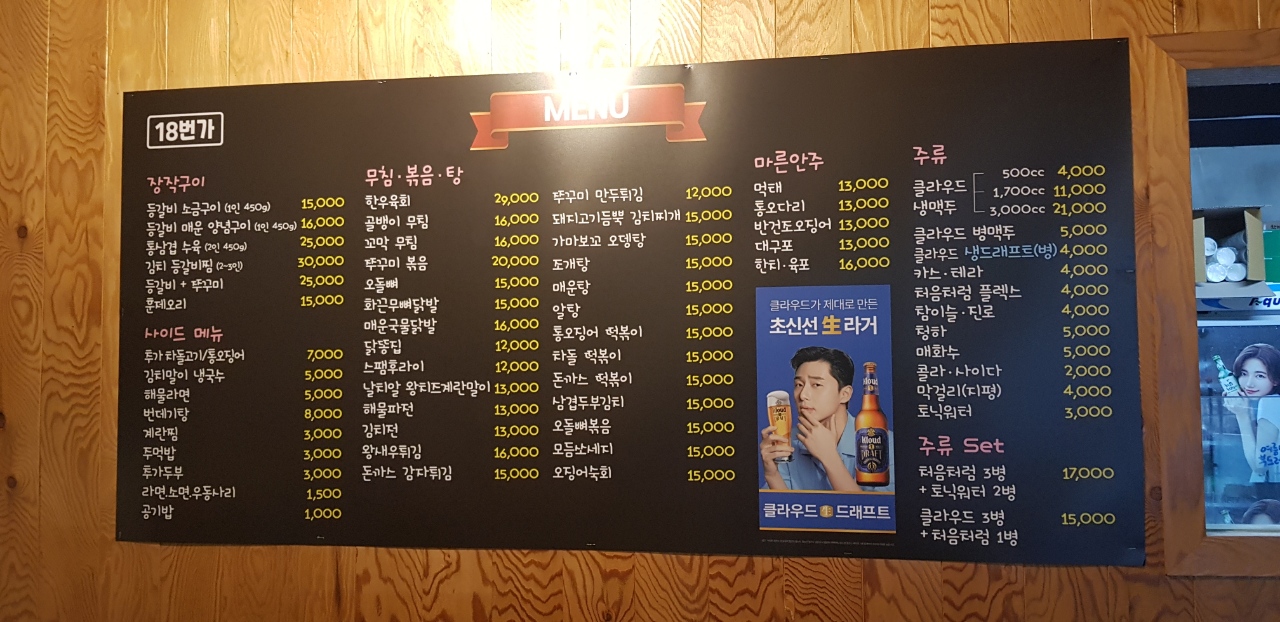 MENU
18번가
장작구이
등갈비 소금구이 (1인 450g) 15,000
등갈비 매운 양념구이 (1인 450g) 16,000
통삼겹 수육 (2인 450g) 25,000
김치 등갈비찜 (2~3인) 30,000
등갈비 + 쭈꾸미 25,000
훈제오리 15,000
사이드 메뉴
추가 차돌고기/통오징어 7,000
김치말이 냉국수 5,000
해물라면 5,000
번데기탕 8,000
계란찜 3,000
주먹밥 3,000
추가두부 3,000
라면.소면.우동사리 1,500
공기밥 1,000
무침·볶음·탕
한우육회 29,000
골뱅이 무침 16,000
꼬막 무침 16,000
쭈꾸미 볶음 20,000
오돌뼈 15,000
화끈무뼈닭발 15,000
매운국물닭발 16,000
닭똥집 12,000
스팸후라이 12,000
날치알 왕치즈계란말이 13,000
해물파전 13,000
김치전 13,000
왕새우튀김 16,000
돈까스 감자튀김 15,000
쭈꾸미 만두튀김 12,000
돼지고기듬뿍 김치찌개 15,000
가마보꼬 오뎅탕 15,000
조개탕 15,000
매운탕 15,000
알탕 15,000
통오징어 떡볶이 15,000
차돌 떡볶이 15,000
돈까스 떡볶이 15,000
삼겹두부김치 15,000
오돌뼈볶음 15,000
모듬쏘세지 15,000
오징어숙회 15,000
마른안주
먹태 13,000
통오다리 13,000
반건토오징어 13,000
대구포 13,000
한치·육포 16,000
클라우드가 제대로 만든
초신선 生 라거
Kloud
DRAFT
클라우드 生 드래프트
주류
클라우드 생맥주
500cc 4,000
1,700cc 11,000
3,000cc 21,000
클라우드 병맥주 5,000
클라우드 생드래프트(병) 4,000
카스·테라 4,000
처음처럼 플렉스 4,000
참이슬·진로 4,000
청하 5,000
매화수 5,000
콜라·사이다 2,000
막걸리(지평) 4,000
토닉워터 3,000
주류 Set
처음처럼 3병 17,000
+ 토닉워터 2병
클라우드 3병 15,000
+ 처음처럼 1병